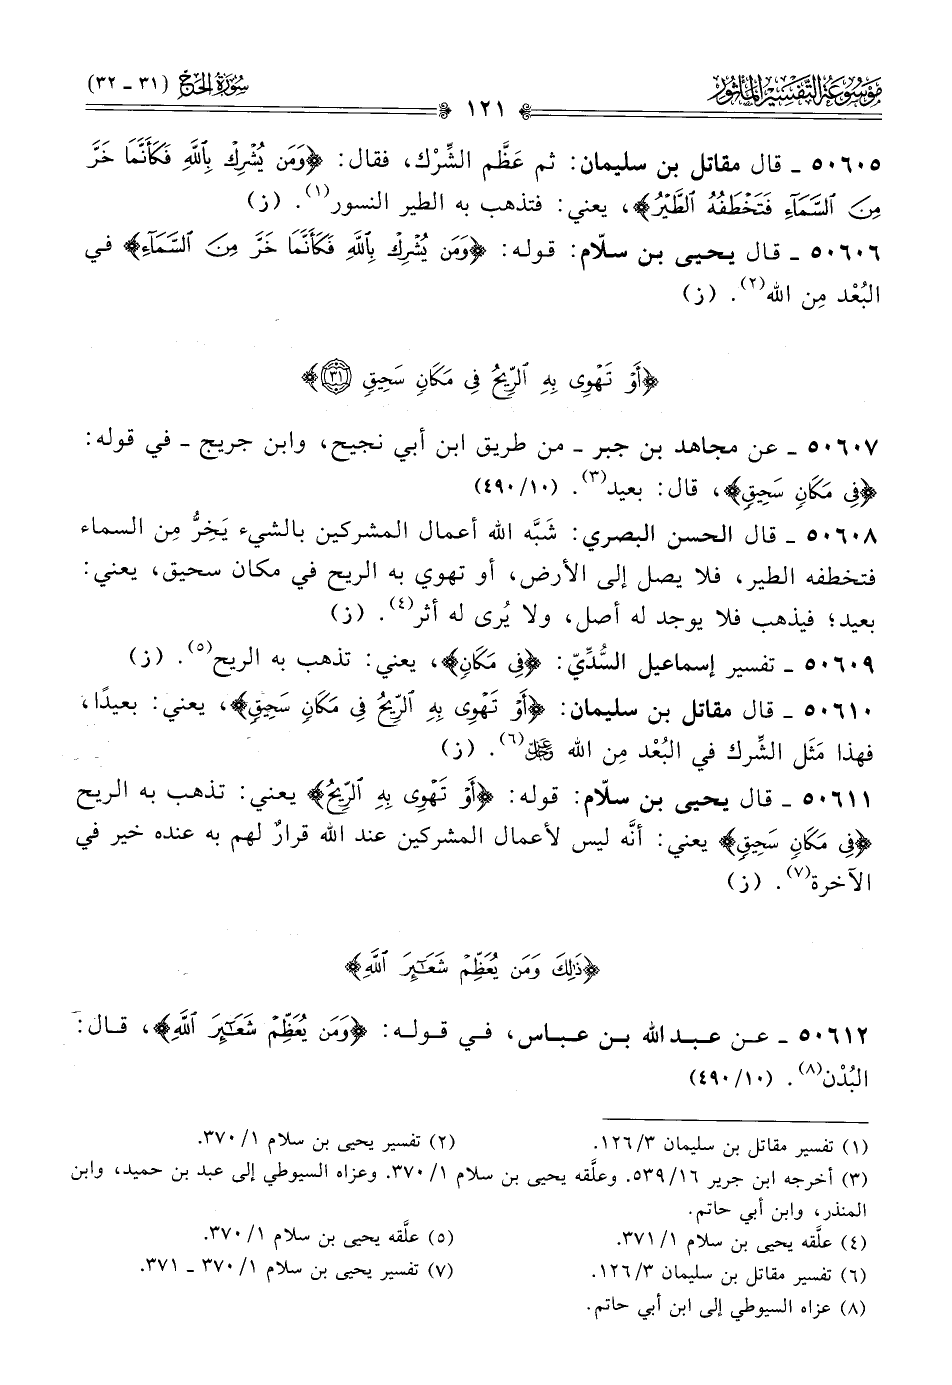 مَوْسُوعَةُ التَّفْسِيرِ المَأْثُور
سُورَةُ الحَجّ (٣١ - ٣٢)
١٢١
٥٠٦٠٥ - قال مقاتل بن سليمان: ثم عَظَّم الشِّرْك، فقال: ﴿وَمَن يُشْرِكْ بِٱللَّهِ فَكَأَنَّمَا خَرَّ
مِنَ ٱلسَّمَآءِ فَتَخْطَفُهُ ٱلطَّيْرُ﴾، يعني: فتذهب به الطير النسور(١). (ز)
٥٠٦٠٦ - قال يحيى بن سلّام: قوله: ﴿وَمَن يُشْرِكْ بِٱللَّهِ فَكَأَنَّمَا خَرَّ مِنَ ٱلسَّمَآءِ﴾ في
البُعْد مِن الله(٢). (ز)
﴿أَوْ تَهْوِى بِهِ ٱلرِّيحُ فِى مَكَانٍ سَحِيقٍ ٣١﴾
٥٠٦٠٧ - عن مجاهد بن جبر - من طريق ابن أبي نجيح، وابن جريج - في قوله:
﴿فِى مَكَانٍ سَحِيقٍ﴾، قال: بعيد(٣). (١٠/ ٤٩٠)
٥٠٦٠٨ - قال الحسن البصري: شَبَّه الله أعمال المشركين بالشيء يَخِرُّ مِن السماء
فتخطفه الطير، فلا يصل إلى الأرض، أو تهوي به الريح في مكان سحيق، يعني:
بعيد؛ فيذهب فلا يوجد له أصل، ولا يُرى له أثر(٤). (ز)
٥٠٦٠٩ - تفسير إسماعيل السُّدِّيّ: ﴿فِى مَكَانٍ﴾، يعني: تذهب به الريح(٥). (ز)
٥٠٦١٠ - قال مقاتل بن سليمان: ﴿أَوْ تَهْوِى بِهِ ٱلرِّيحُ فِى مَكَانٍ سَحِيقٍ﴾، يعني: بعيدًا،
فهذا مَثَل الشِّرك في البُعْد مِن الله ﷿(٦). (ز)
٥٠٦١١ - قال يحيى بن سلّام: قوله: ﴿أَوْ تَهْوِى بِهِ ٱلرِّيحُ﴾ يعني: تذهب به الريح
﴿فِى مَكَانٍ سَحِيقٍ﴾ يعني: أنَّه ليس لأعمال المشركين عند الله قرارٌ لهم به عنده خير في
الآخرة(٧). (ز)
﴿ذَٰلِكَ وَمَن يُعَظِّمْ شَعَٰٓئِرَ ٱللَّهِ﴾
٥٠٦١٢ - عن عبد الله بن عباس، في قوله: ﴿وَمَن يُعَظِّمْ شَعَٰٓئِرَ ٱللَّهِ﴾، قال:
البُدْن(٨). (١٠/ ٤٩٠)
(١) تفسير مقاتل بن سليمان ٣/ ١٢٦. (٢) تفسير يحيى بن سلام ١/ ٣٧٠.
(٣) أخرجه ابن جرير ١٦/ ٥٣٩. وعلَّقه يحيى بن سلام ١/ ٣٧٠. وعزاه السيوطي إلى عبد بن حميد، وابن
المنذر، وابن أبي حاتم.
(٤) علَّقه يحيى بن سلام ١/ ٣٧١. (٥) علَّقه يحيى بن سلام ١/ ٣٧٠.
(٦) تفسير مقاتل بن سليمان ٣/ ١٢٦. (٧) تفسير يحيى بن سلام ١/ ٣٧٠ - ٣٧١.
(٨) عزاه السيوطي إلى ابن أبي حاتم.